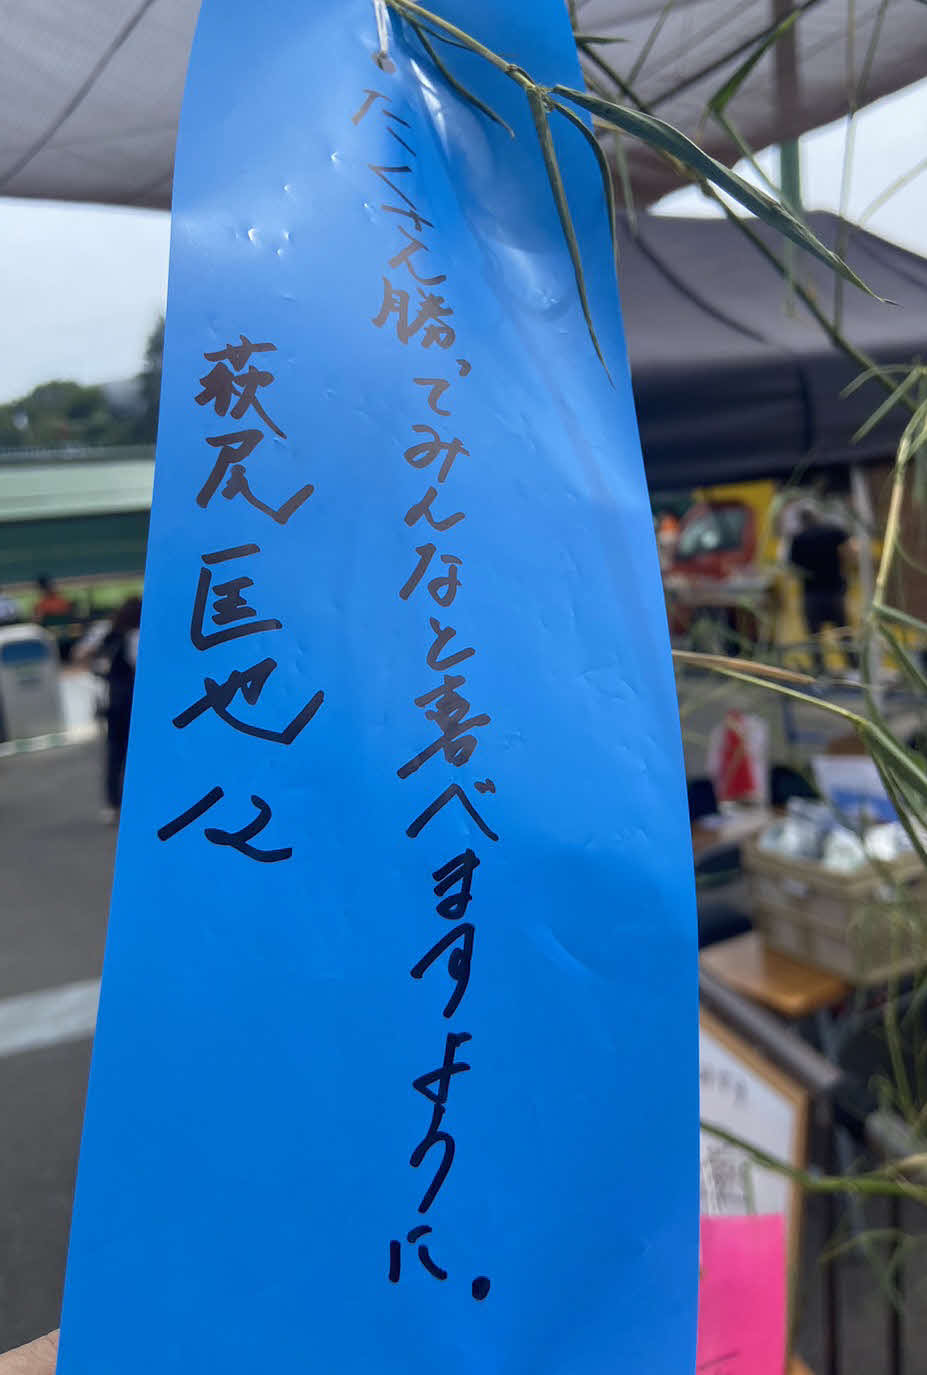 たくさん勝ってみんなと喜べますように.
萩尾匡也 12